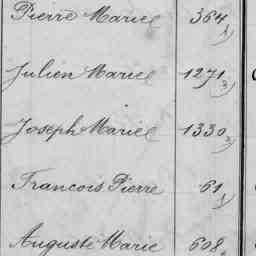 Pierre Marie 364 1)
Julien Marie 1271 3)
Joseph Marie 1330 3)
Francois Pierre 61 1)
Auguste Marie 608